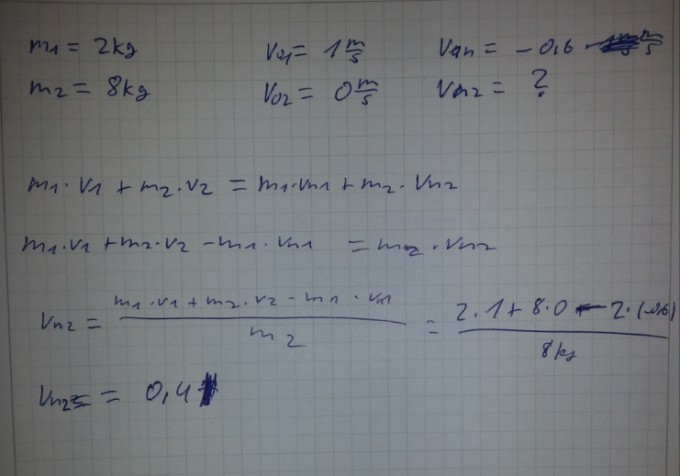 m1 = 2kg v01 = 1 m/s vn1 = -0,6 m/s
m2 = 8kg v02 = 0 m/s vn2 = ?
m1·v1 + m2·v2 = m1·vn1 + m2·vn2
m1·v1 + m2·v2 - m1·vn1 = m2·vn2
vn2 = (m1·v1 + m2·v2 - m1·vn1) / m2 = (2·1 + 8·0 - 2·(-0,6)) / 8kg
vn2 = 0,4